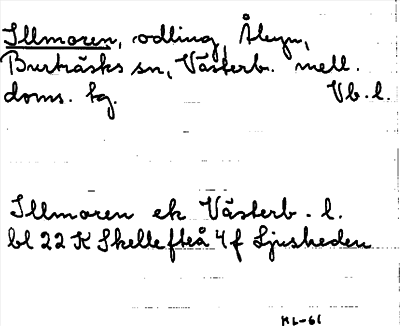 Illmoren, odling, Åbyn,
Burträsks sn, Västerb. mell.
doms. tg. Vb. l.
Illmoren ek Västerb. l.
bl 22 K Skellefteå 4 f Ljusheden
KL-61